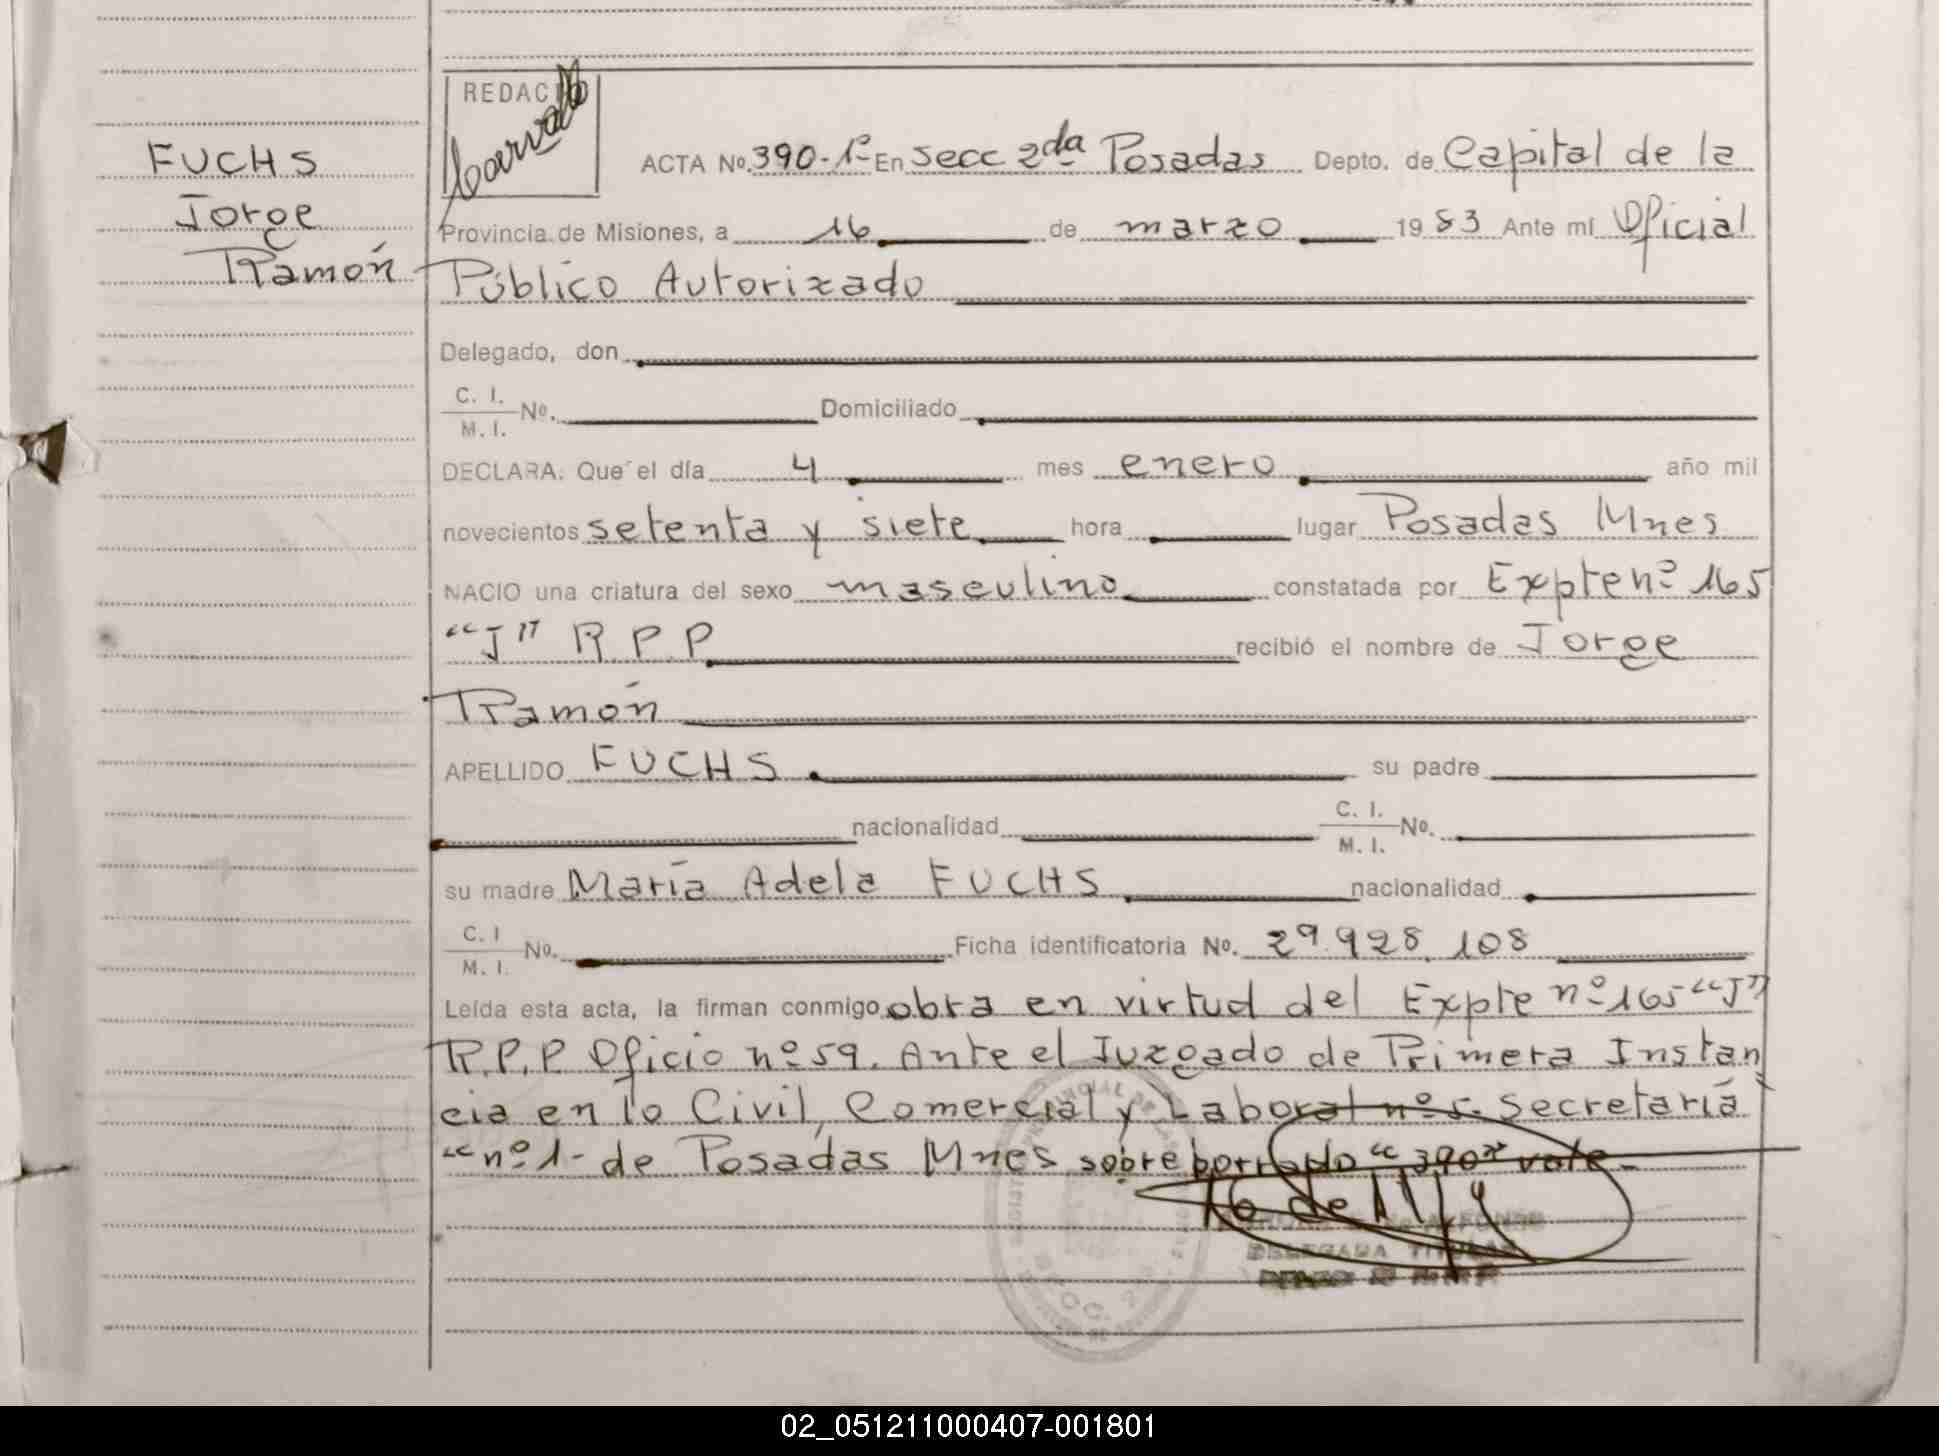 FUCHS
Jorge
Ramón
REDACTO
ACTA Nº. 390-1º En secc 2da Posadas Depto. de Capital de la
Provincia de Misiones, a 16 de marzo 1983 Ante mí Oficial
Público Autorizado
Delegado, don
C. I.
M. I. Nº. Domiciliado
DECLARA: Que el día 4 mes enero año mil
novecientos setenta y siete hora lugar Posadas Mnes
NACIO una criatura del sexo masculino constatada por Expte nº 165
“J” R P P recibió el nombre de Jorge
Ramón
APELLIDO FUCHS su padre
nacionalidad C. I.
M. I. Nº.
su madre María Adela FUCHS nacionalidad
C. I
M. I. Nº. Ficha identificatoria Nº. 29.928.108
Leída esta acta, la firman conmigo obra en virtud del Expte nº 165 “J”
R.P.P. Oficio nº 59. Ante el Juzgado de Primera Instan
cia en lo Civil, Comercial y Laboral nº 5. Secretaría
“nº 1- de Posadas Mnes sobre borrado “390” vale-
DELEGADA TITULAR
02_051211000407-001801